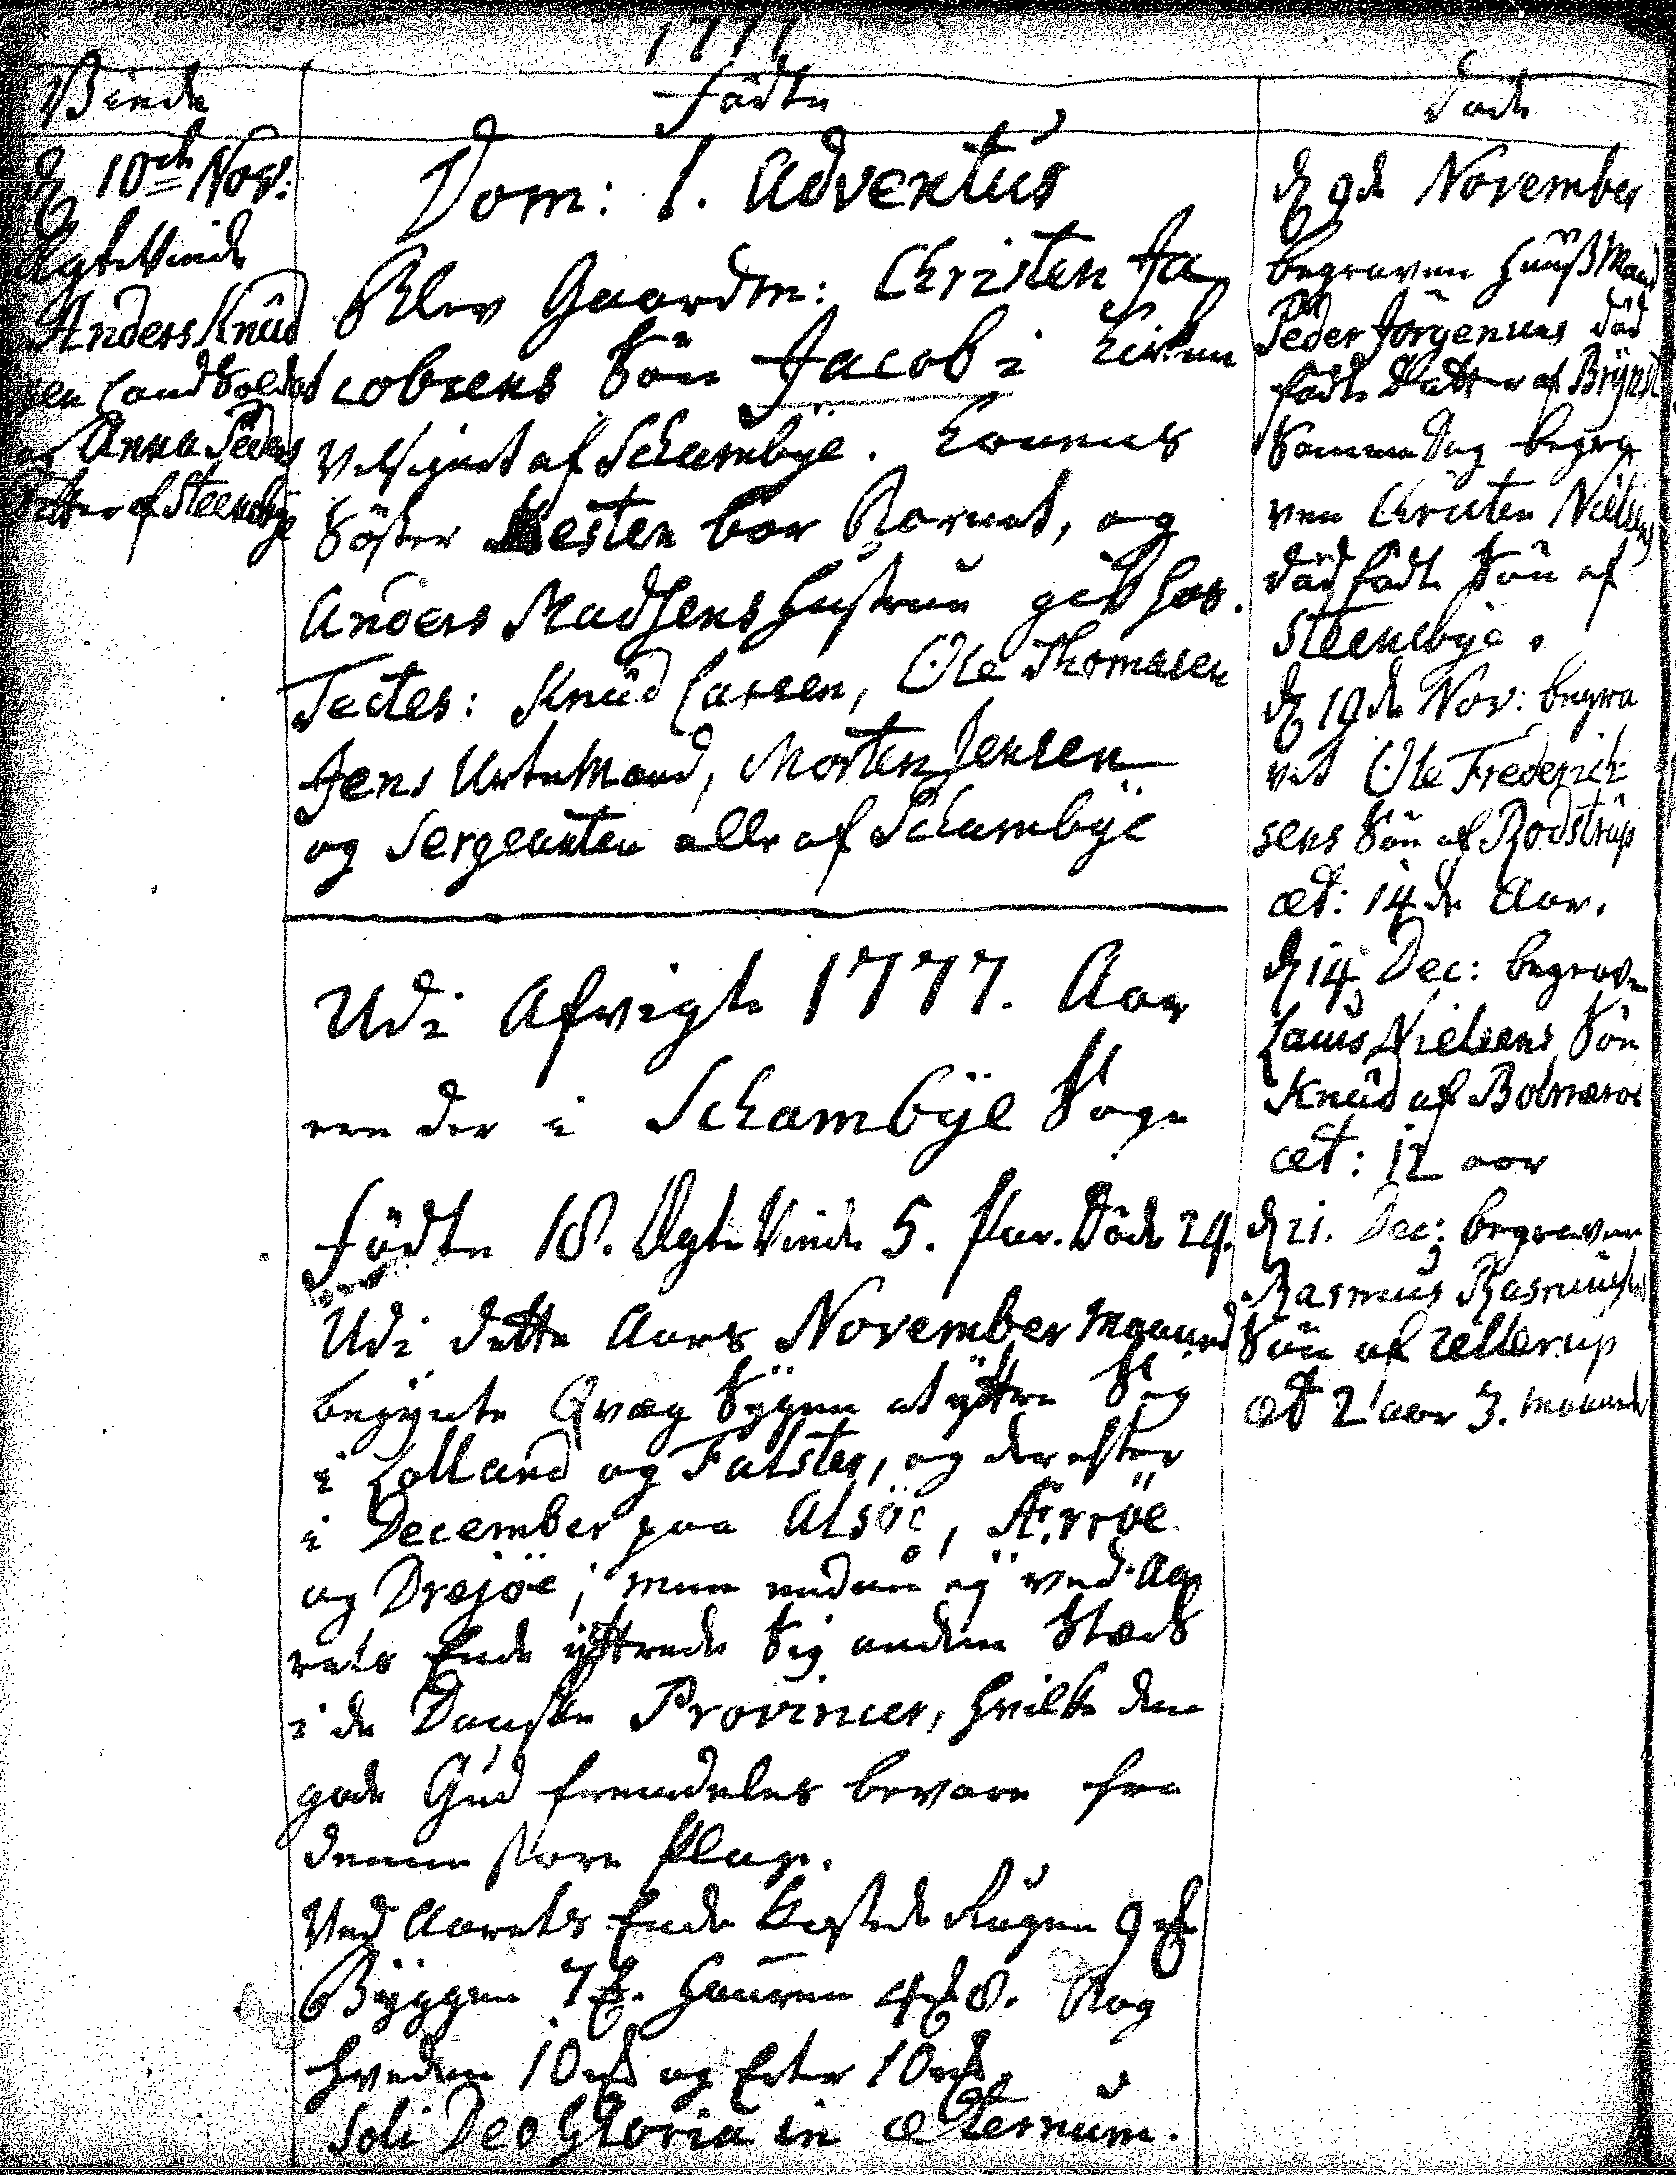 1777
Viede
d 10de Nov:
Ægte Viede
Anders Knud
sen Land Soldat
og Anna Peders
Datter af Steensbye
Födte
Dom: 1. Adventus
Blev Gaardm: Christen Ja
cobsens Sön Jacob i Kirken
velsignet af Schambye. Konens
Söster bar Barnet, og
Anders Madsens Hustrue gik hos.
Testes: Knud Larsen, Ole Thomasen
Jens UrteMand, Morten Jensen
og Sergeanten alle af Schambye
Udi Afvigte 1777. Aar
ere der i Schambye Sogn
Födte 18. Ægte Viede 5. Par. Döde 29.
Udi dette Aars November Maaned
begynte Qvæg Sygen at yttre Sig
i Lolland og Falster, og derefter
i December paa Alsöe, Ærröe
og Drejöe; men endnu ej ved Aa
rets Ende yttrede Sig anden Stæds
i de Danske Provincer, hvilke den
gode Gud fremdeles bevare fra
denne store Plage.
Ved Aarets Ende kostede Rugen 9
Byggen 7 Hauren 4 8. Bog
hveden 10 og Erter 10
Soli Deo Gloria in æternum.
Döde
d 9de November
begraven HuusMand
Peder Jörgensens död
födte Datter af
Samme Dag begra
ven Christen Nielsens
död födte Sön af
Steensbye.
d 19de Nov: begra
vet Ole Frederich
sens Sön af Rodstrup
æt: 14de Aar.
d 14 Dec: begraven
Laurs Nielsens Sön
Knud af Bolmeroe
æt: 12 aar
d 21. Dec: begraven
Rasmus Rasmusens
Sön af Ullerup
æt 2 aar 3. maaneder